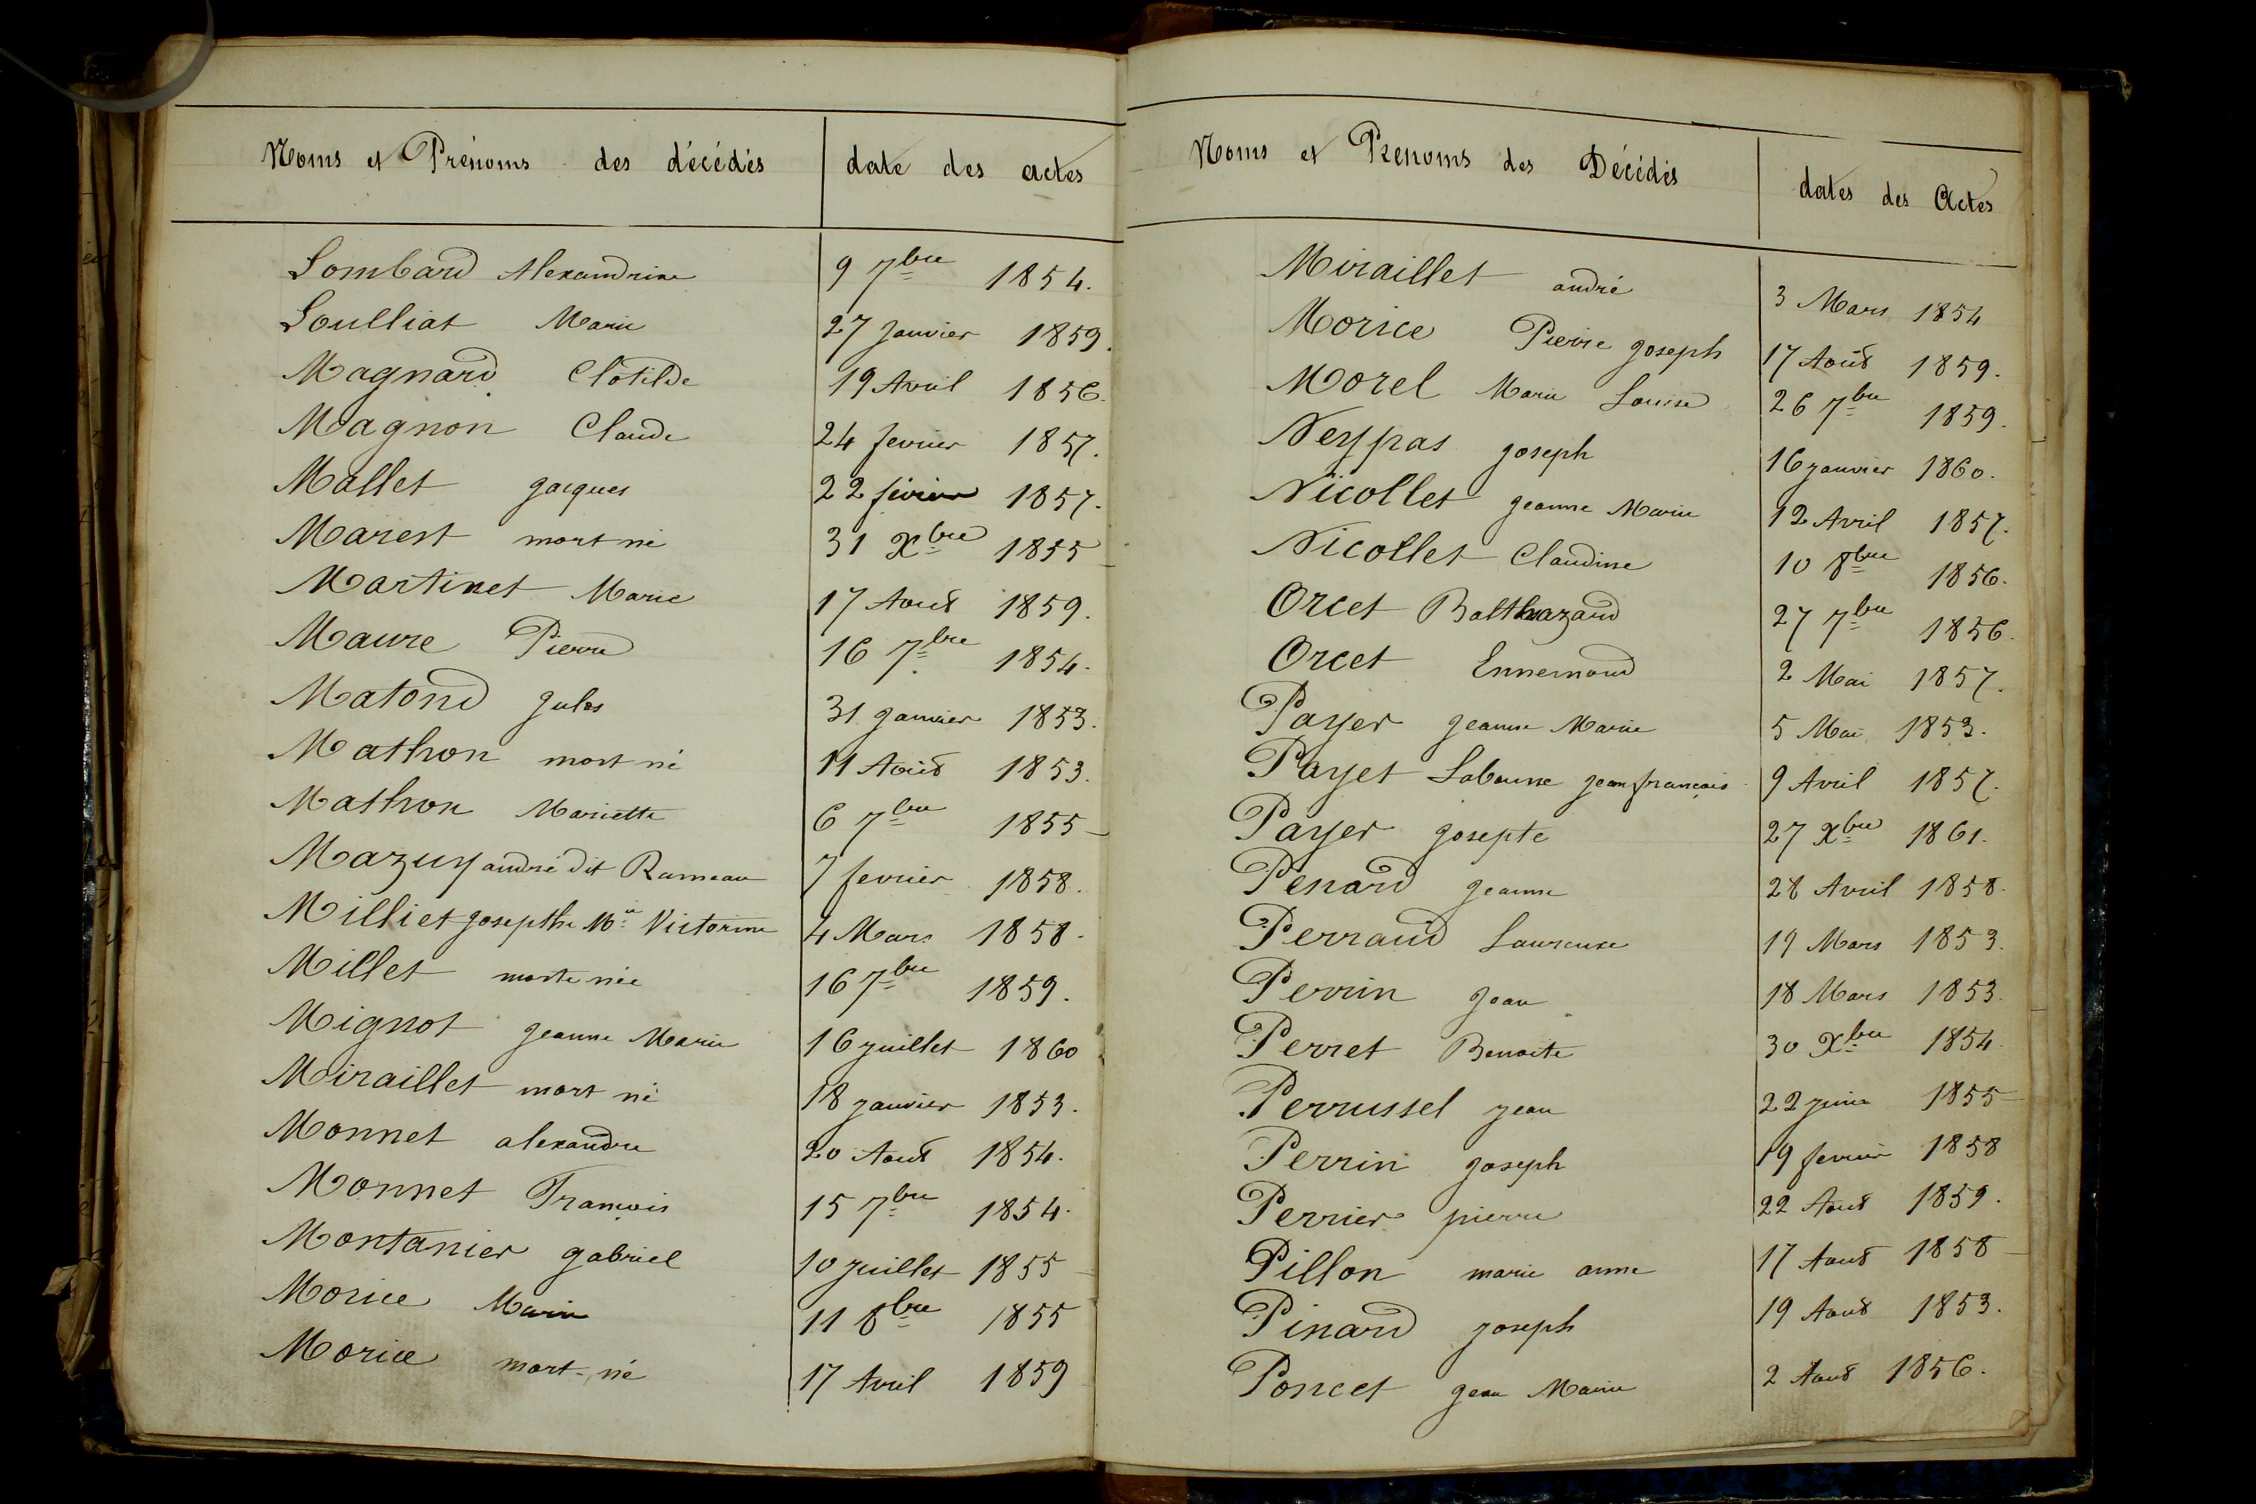 Noms et Prénoms des décédés date des actes
Lombard Alexandrine 9 7bre 1854.
Loulliat Marie 27 Janvier 1859.
Magnard Clotilde 19 Avril 1856.
Magnon Claude 24 fevrier 1857.
Mallet Jacques 22 février 1857.
Marest mort né 31 Xbre 1855
Martinet Marie 17 Aout 1859.
Maure Pierre 16 7bre 1854.
Matond Jules 31 Janvier 1853.
Mathon mort né 11 Aout 1853.
Mathon Mariette 6 7bre 1855
Mazuy andré dit Rameau 7 fevrier 1858.
Milliet Josepthe Mie Victorine 4 Mars 1858.
Millet morte née 16 7bre 1859.
Mignot Jeanne Marie 16 Juillet 1860
Miraillet mort né 18 Janvier 1853.
Monnet alexandre 20 Aout 1854.
Monnet François 15 7bre 1854.
Montanier gabriel 10 Juillet 1855
Morice Marie 11 8bre 1855
Morice mort-né 17 Avril 1859
Noms et Prenoms des Décédés dates des Actes
Miraillet andré 3 Mars 1854
Morice Pierre Joseph 17 Aout 1859.
Morel Marie Louise 26 7bre 1859.
Neypas Joseph 16 Janvier 1860.
Nicollet Jeanne Marie 12 Avril 1857.
Nicollet Claudine 10 8bre 1856.
Orcet Balthazard 27 7bre 1856.
Orcet Ennemond 2 Mai 1857.
Payer Jeanne Marie 5 Mai 1853.
Payet Labonne Jean françois 9 Avril 1857.
Payer Josepte 27 Xbre 1861.
Penard Jeanne 28 Avril 1858.
Perraud Laurence 19 Mars 1853.
Perrin Jean 18 Mars 1853.
Perret Benoite 30 Xbre 1854
Perrussel Jean 22 Juin 1855
Perrin Joseph 19 fevrier 1858
Perrier pierre 22 Aout 1859.
Pillon marie anne 17 Aout 1858
Pinard Joseph 19 Aout 1853.
Poncet Jean Marie 2 Aout 1856.